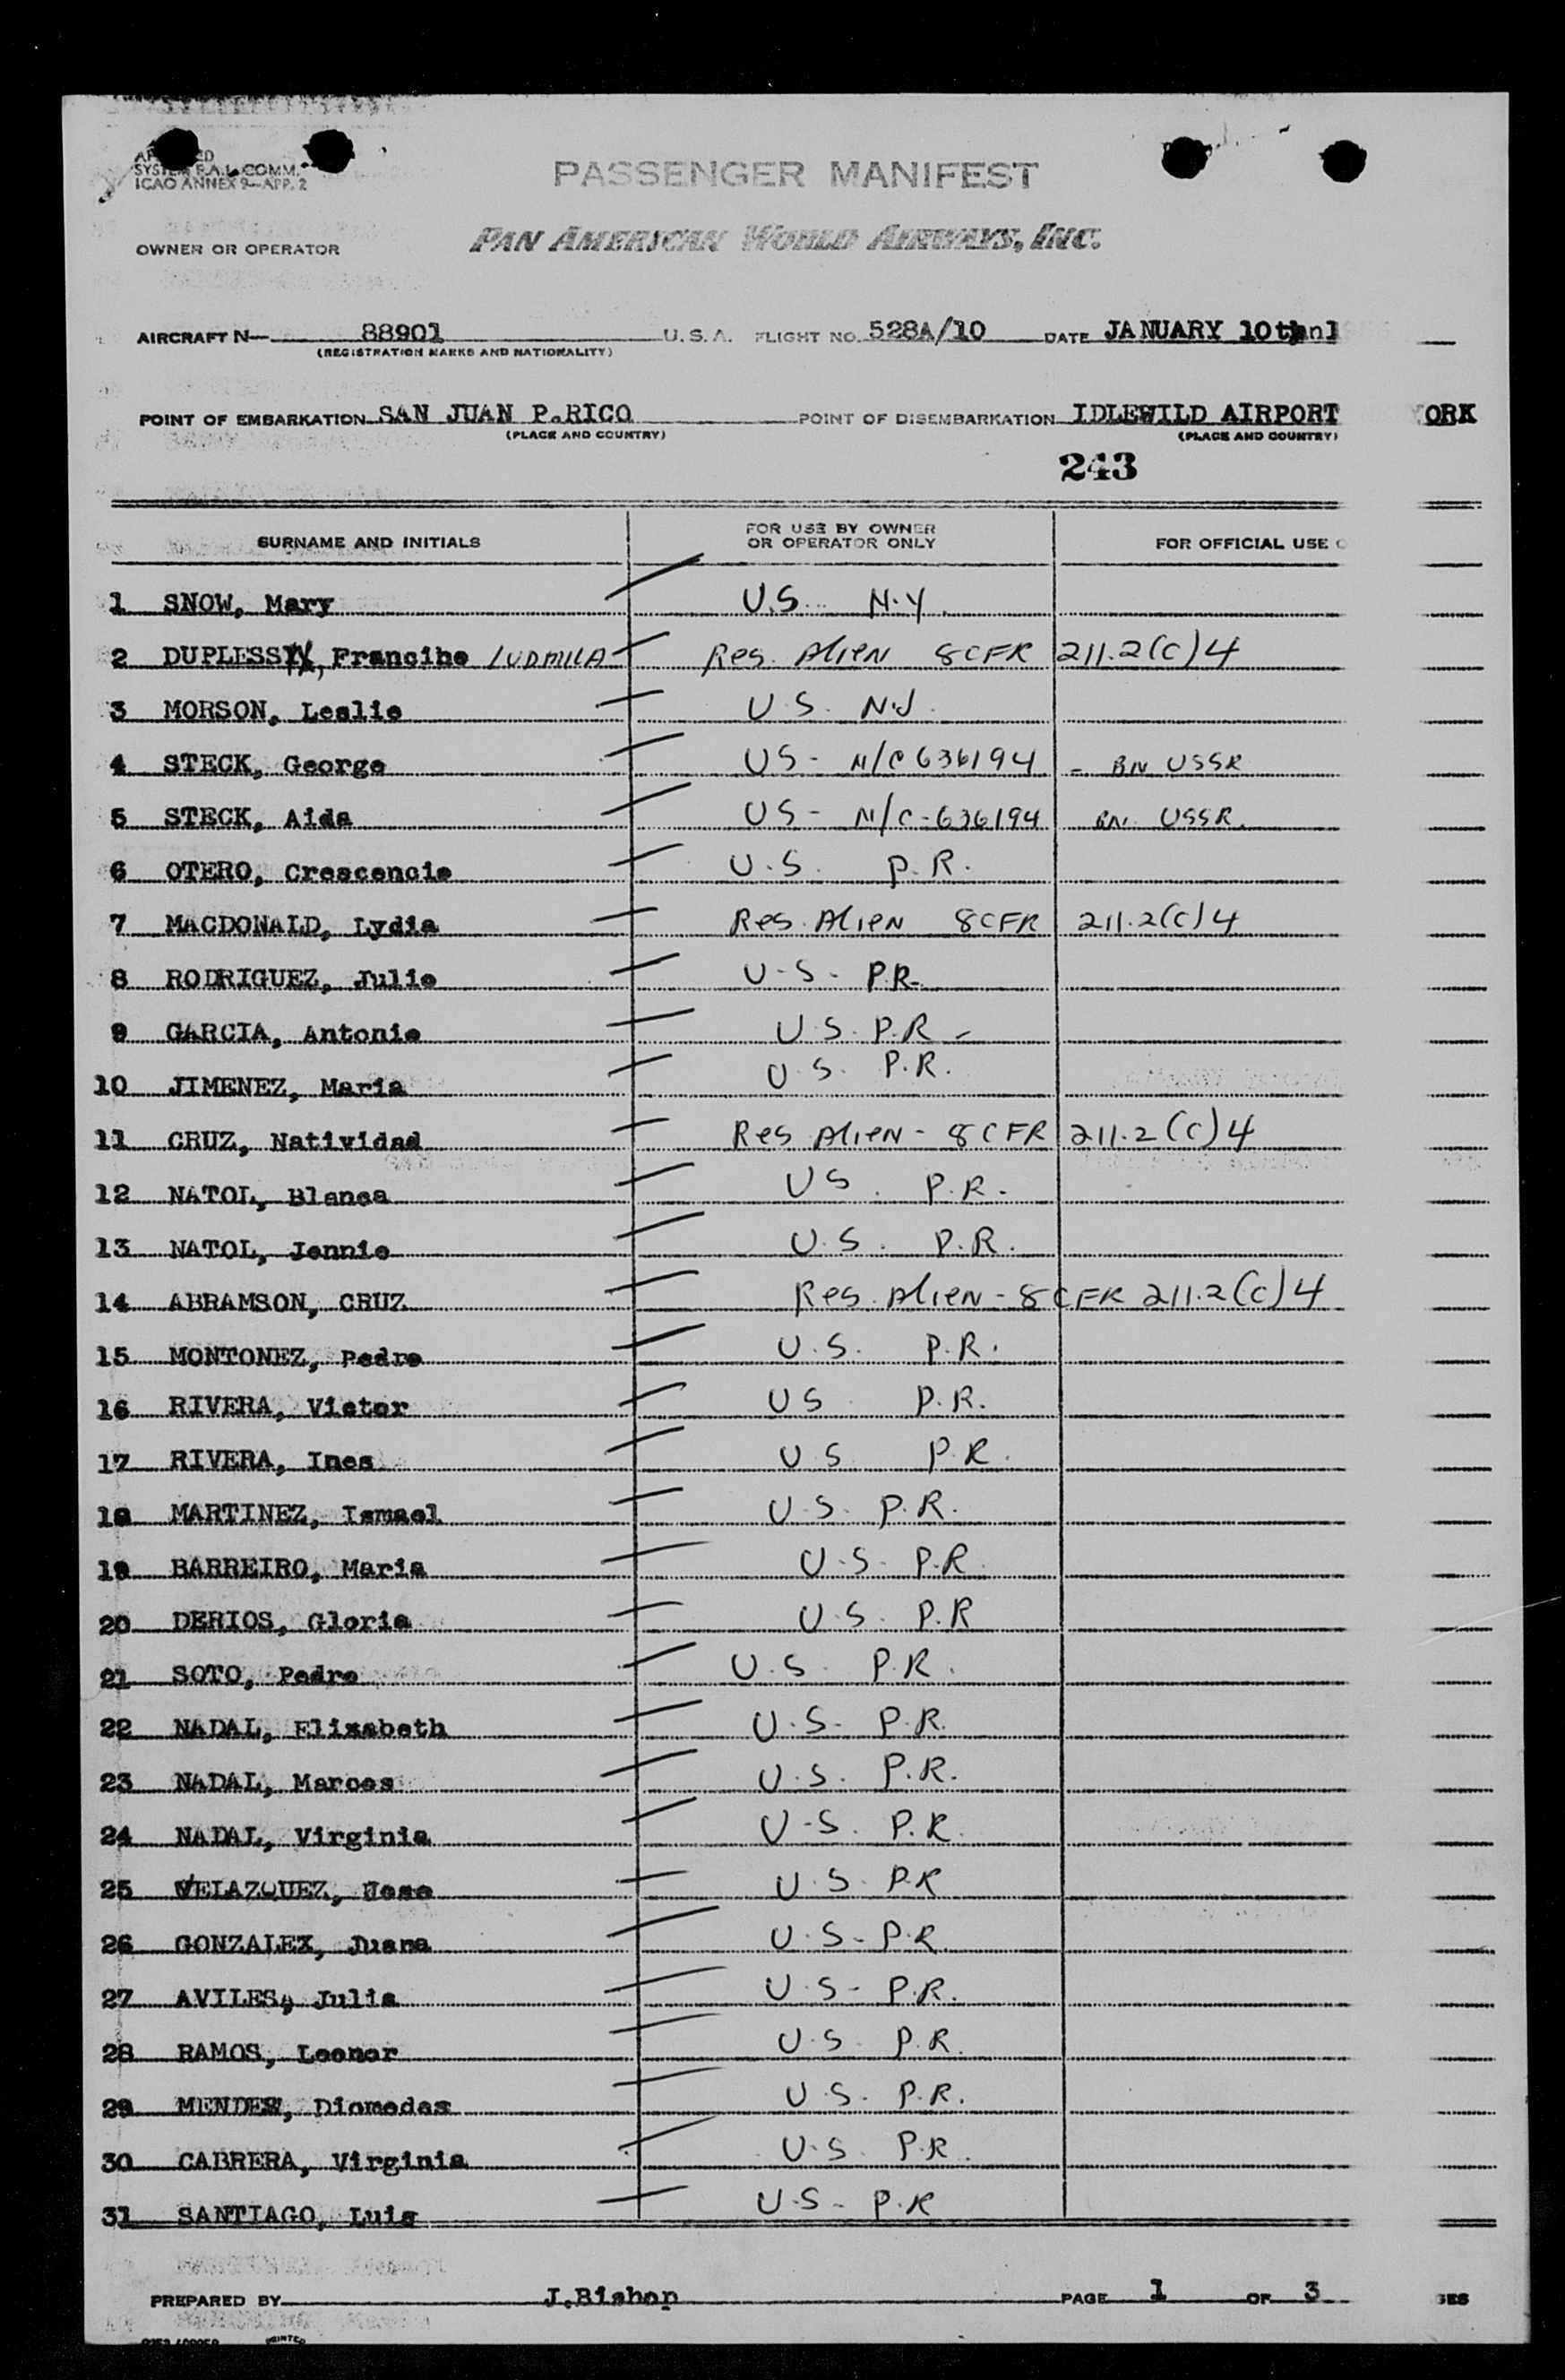 SYSTEM F.A.L. COMM.
ICAO ANNEX 9—APP. 2
PASSENGER MANIFEST
OWNER OR OPERATOR PAN AMERICAN WORLD AIRWAYS, INC.
AIRCRAFT N— 88901 U.S.A. FLIGHT NO. 528A/10 DATE JANUARY 10th
(REGISTRATION MARKS AND NATIONALITY)
POINT OF EMBARKATION SAN JUAN P.RICO POINT OF DISEMBARKATION IDLEWILD AIRPORT ORK
(PLACE AND COUNTRY) (PLACE AND COUNTRY)
243
SURNAME AND INITIALS FOR USE BY OWNER OR OPERATOR ONLY FOR OFFICIAL USE
1 SNOW, Mary U.S. N.Y.
2 DUPLESSIX, Francine LUDMILLA Res. Alien 8CFR 211.2(c)4
3 MORSON, Leslie U.S. N.J.
4 STECK, George US - N/C 636194 - BN USSR
5 STECK, Aida US - N/C-636194 BN. USSR.
6 OTERO, Crescencio U.S. P.R.
7 MACDONALD, Lydia Res. Alien 8CFR 211.2(c)4
8 RODRIGUEZ, Julio U-S- P.R-
9 GARCIA, Antonio U.S. P.R-
10 JIMENEZ, Maria U.S. P.R.
11 CRUZ, Natividad Res Alien - 8CFR 211.2(c)4
12 NATOL, Blanca US. P.R.
13 NATOL, Jennie U.S. P.R.
14 ABRAMSON, CRUZ Res. Alien - 8CFR 211.2(c)4
15 MONTONEZ, Pedro U.S. P.R.
16 RIVERA, Victor US P.R.
17 RIVERA, Ines U S P.R.
18 MARTINEZ, Ismael U.S. P.R.
19 BARREIRO, Maria U.S- P.R.
20 DERIOS, Gloria U.S. P.R
21 SOTO, Pedro U.S. P.R.
22 NADAL, Elizabeth U.S- P.R.
23 NADAL, Marcos U.S. P.R.
24 NADAL, Virginia U-S. P.R.
25 VELAZQUEZ, Jose U.S. P.R
26 GONZALEX, Juana U.S- P.R.
27 AVILES, Julia U.S- P.R.
28 RAMOS, Leonor U.S P.R.
29 MENDEZ, Diomedas U.S- P.R.
30 CABRERA, Virginia U.S. P.R.
31 SANTIAGO, Luis U.S- P.R
PREPARED BY J.Bishop PAGE 1 OF 3